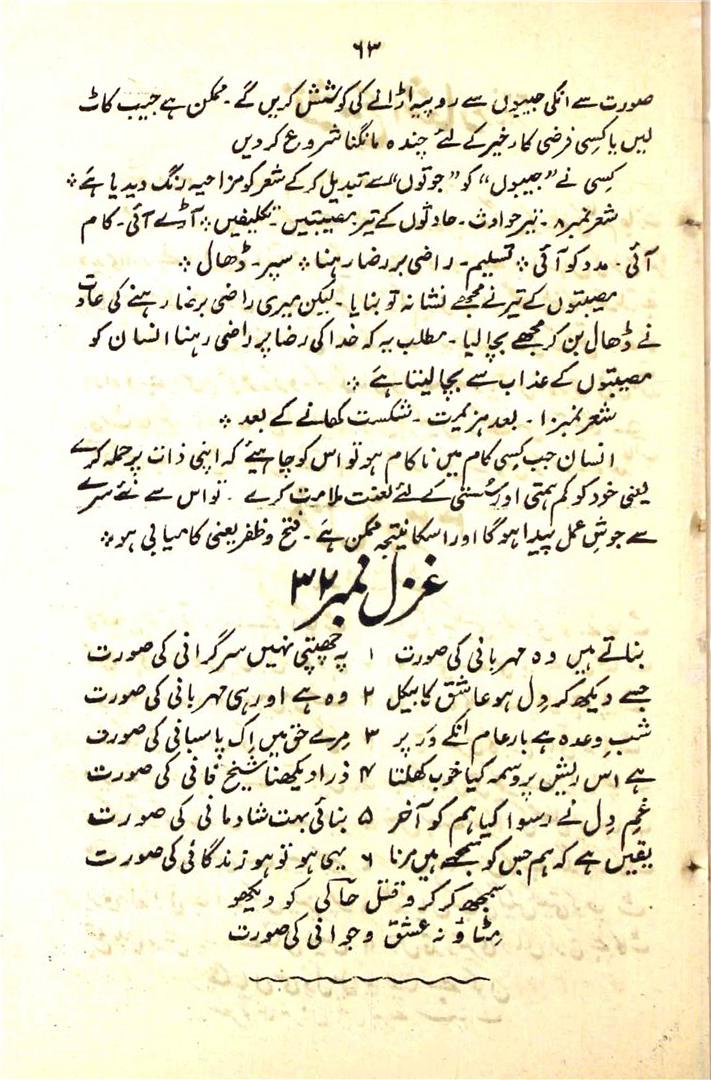 ۶۳
صورت سے انکی جیبوں سے روپیہ اڑانے کی کوشش کریں گے۔ ممکن ہے جیب کاٹ
لیں یا کسی فرضی کارخیر کے لئے چندہ مانگنا شروع کر دیں
کسی نے "جیبوں" کو "جوتوں" سے تبدیل کر کے شعر کو مزاحیہ رنگ دیدیا ہے ٭
شعر نمبر ۸۔ تیر حوادث۔ حادثوں کے تیر مصیبتیں۔ تکلیفیں ٭ آڑے آئی۔ کام
آئی۔ مدد کو آئی ٭ تسلیم۔ راضی بر رضا رہنا ٭ سپر۔ ڈھال ٭
مصیبتوں کے تیر نے مجھے نشانہ تو بنایا۔ لیکن میری راضی برضا رہنے کی عادت
نے ڈھال بن کر مجھے بچا لیا۔ مطلب یہ کہ خدا کی رضا پر راضی رہنا انسان کو
مصیبتوں کے عذاب سے بچا لیتا ہے ٭
شعر نمبر ۱۰۔ بعد ہزیمت۔ شکست کھانے کے بعد ٭
انسان جب کسی کام میں ناکام ہو تو اس کو چاہیئے کہ اپنی ذات پر حملہ کرے
یعنی خود کو کم ہمتی اور سُستی کے لئے لعنت ملامت کرے۔ تو اس سے نئے سرے
سے جوشِ عمل پیدا ہو گا اور اسکا نتیجہ ممکن ہے۔ فتح و ظفر یعنی کامیابی ہو ٭
غزل نمبر ۳۲
بناتے ہیں وہ مہربانی کی صورت ۱ پہ چھپتی نہیں سرگرانی کی صورت
جسے دیکھ کر دِل ہو عاشق کا بیکل ۲ وہ ہے اور ہی مہربانی کی صورت
شبِ وعدہ ہے بار عام انکے دَر پر ۳ مِرے حق میں اِک پاسبانی کی صورت
ہے اس ریش پر وسمہ کیا خوب کھلتا ۴ ذرا دیکھنا شیخ فانی کی صورت
غمِ دِل نے رسوا کیا ہم کو آخر ۵ بنائی بہت شادمانی کی صورت
یقیں ہے کہ ہم جس کو سمجھے ہیں مرنا ۶ یہی ہو تو ہو زندگانی کی صورت
سمجھ کر کرو قتل حاکی کو دیکھو
مِٹاؤ نہ عشق و جوانی کی صورت